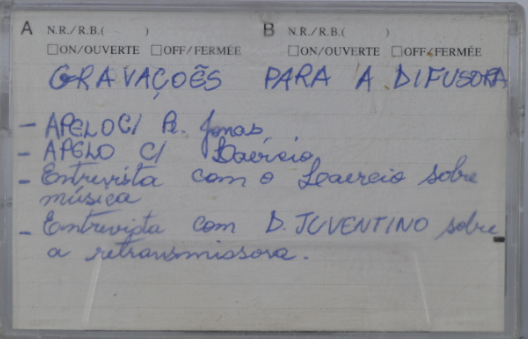 A N.R./R.B.( ) B N.R./R.B.( )
□ON/OUVERTE □OFF/FERMÉE □ON/OUVERTE □OFF/FERMÉE
GRAVAÇOÊS PARA A DIFUSORA
- APELO C/ Pe. Jonas
- APELO C/ Laércio
- Entrevista com o Laercio sobre
música
- Entrevista com D. JUVENTINO sobre
a retransmissora.